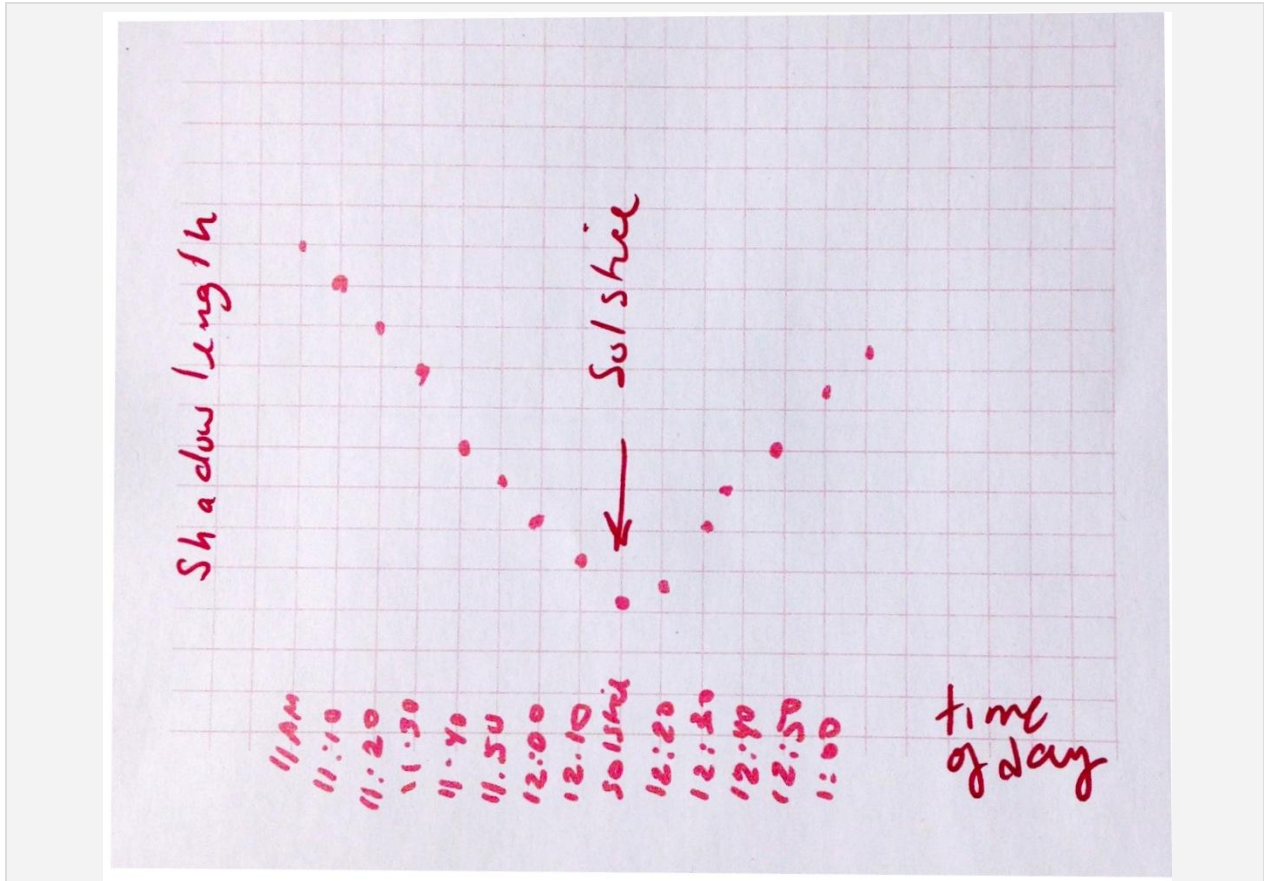 Shadow length
Solstice
11 AM
11:10
11:20
11:30
11:40
11:50
12:00
12:10
Solstice
12:20
12:30
12:40
12:50
1:00
time
of day